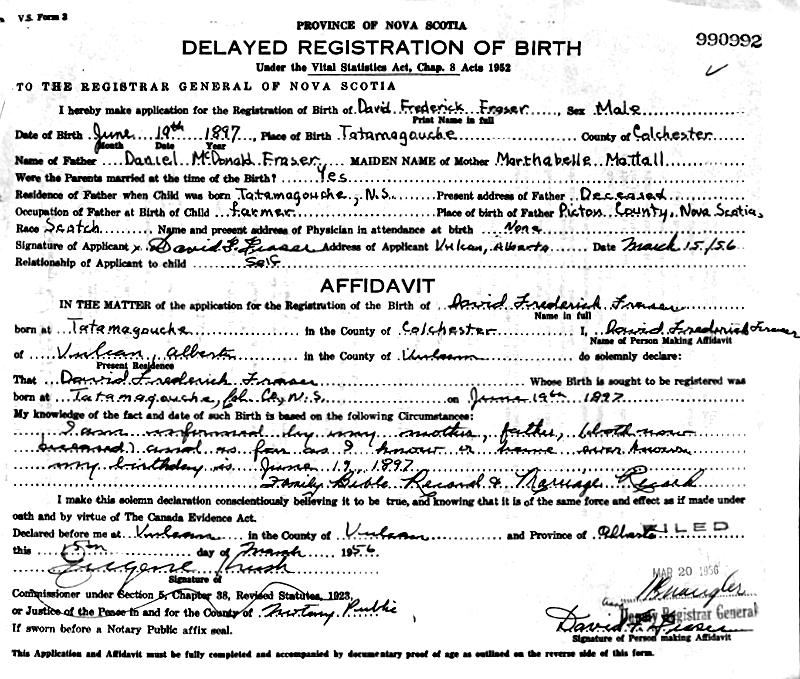 V.S. Form 3
PROVINCE OF NOVA SCOTIA
DELAYED REGISTRATION OF BIRTH
990992
Under the Vital Statistics Act, Chap. 8 Acts 1952
TO THE REGISTRAR GENERAL OF NOVA SCOTIA
I hereby make application for the Registration of Birth of David Frederick Fraser, Sex Male
Print Name in full
Date of Birth June 19th 1897, Place of Birth Tatamagouche County of Colchester
Month Date Year
Name of Father Daniel McDonald Fraser, MAIDEN NAME of Mother Marthabelle Mattall
Were the Parents married at the time of the Birth? Yes
Residence of Father when Child was born Tatamagouche, N.S. Present address of Father Deceased
Occupation of Father at Birth of Child farmer Place of birth of Father Picton County, Nova Scotia
Race Scotch Name and present address of Physician in attendance at birth None
Signature of Applicant x David F. Fraser Address of Applicant Vulcan, Alberta Date March 15/56
Relationship of Applicant to child Self
AFFIDAVIT
IN THE MATTER of the application for the Registration of the Birth of David Frederick Fraser
Name in full
born at Tatamagouche in the County of Colchester I, David Frederick Fraser
Name of Person Making Affidavit
of Vulcan, Alberta in the County of Vulcan do solemnly declare:
Present Residence
That David Frederick Fraser Whose Birth is sought to be registered was
born at Tatamagouche, Col. Co, N.S. on June 19th 1897
My knowledge of the fact and date of such Birth is based on the following Circumstances:
I am informed by my mother, father, both now
deceased and as far as I know or have ever known
my birthday is June 19, 1897
Family Bible Record & Marriage Record
I make this solemn declaration conscientiously believing it to be true, and knowing that it is of the same force and effect as if made under
oath and by virtue of The Canada Evidence Act.
Declared before me at Vulcan in the County of Vulcan and Province of Alberta
FILED
this 15th day of March 1956
MAR 20 1956
Eugene
Signature of
Commissioner under Section 5, Chapter 38, Revised Statutes, 1923,
or Justice of the Peace in and for the County of Notary Public
Deputy Registrar General
If sworn before a Notary Public affix seal.
David F. Fraser
Signature of Person making Affidavit
This Application and Affidavit must be fully completed and accompanied by documentary proof of age as outlined on the reverse side of this form.